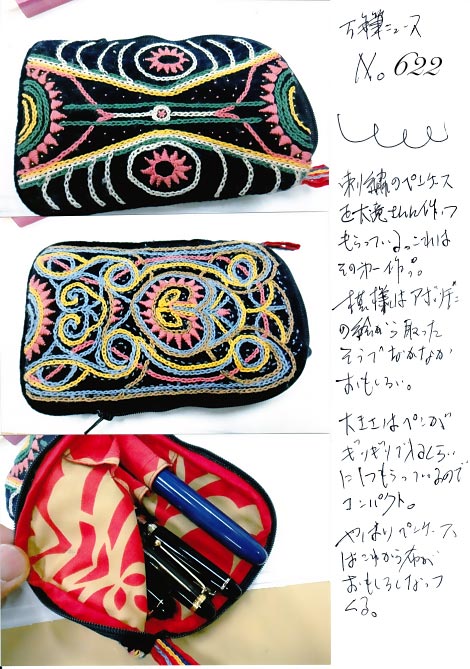 万年筆ニュース
No. 622
刺繍のペンケース
を大境さんに作って
もらっている。これは
その第一作。
模様はアボリジニ
の絵から取った
そうでなかなか
おもしろい。
大きさはペンが
ギリギリで入るくらい
にしてもらっているので
コンパクト。
やはりペンケース
はこれから布が
おもしろくなって
くる。